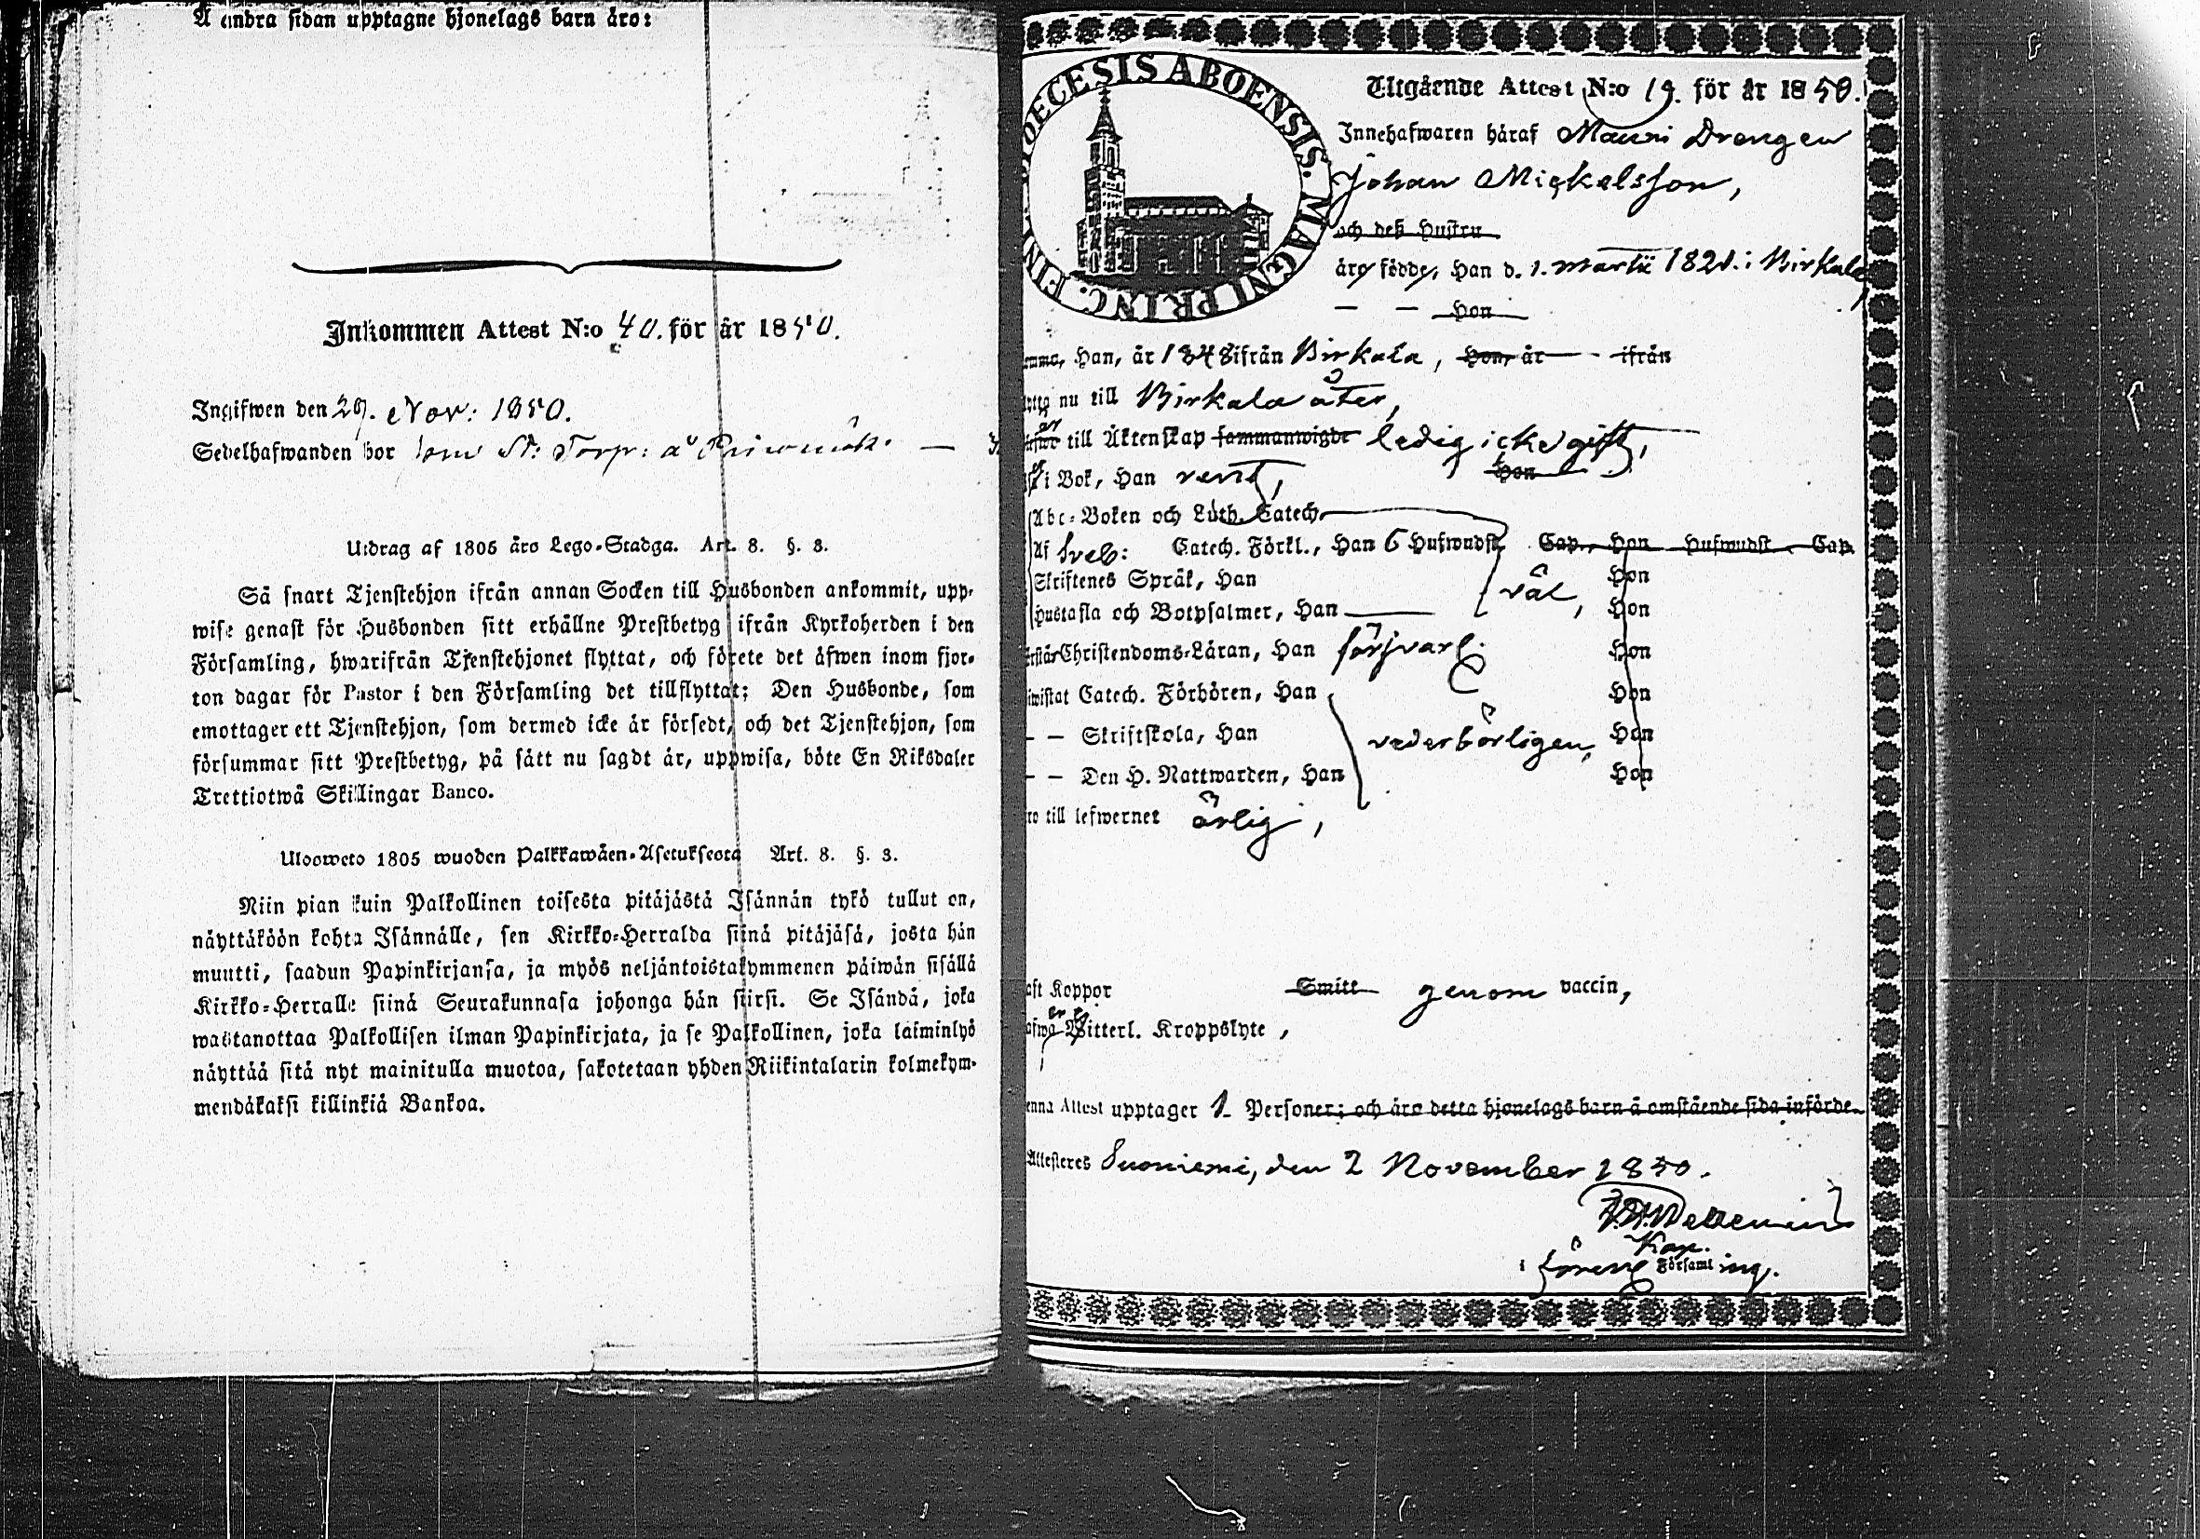 Å andra sidan upptagne hjonelags barn äro:
Inkommen Attest N:o 40. för år 1850.
Ingifwen den 29. Nov: 1850.
Sedelhafwanden bor som St: Torp: å
Utdrag af 1805 års Lego-Stadga. Art. 8. §. 3.
Så snart Tjenstehjon ifrån annan Socken till Husbonden ankommit, upp-
wise genast för Husbonden sitt erhållne Prestbetyg ifrån Kyrkoherden i den
Församling, hwarifrån Tjenstehjonet flyttat, och förete det äfwen inom fjor-
ton dagar för Pastor i den Församling det tillflyttat; Den Husbonde, som
emottager ett Tjenstehjon, som dermed icke är försedt, och det Tjenstehjon, som
försummar sitt Prestbetyg, på sätt nu sagdt är, uppwisa, böte En Riksdaler
Trettiotwå Skillingar Banco.
Uloosweto 1805 wuoden Palkkawäen-Asetuksesta Art. 8. §. 3.
Niin pian kuin Palkollinen toisesta pitäjästä Isännän tykö tullut on,
näyttäköön kohta Isännälle, sen Kirkko-Herralda siinä pitäjäsä, josta hän
muutti, saadun Papinkirjansa, ja myös neljäntoistakymmenen päiwän sisällä
Kirkko-Herralle siinä Seurakunnasa johonga hän siirsi. Se Isändä, joka
wastanottaa Palkollisen ilman Papinkirjata, ja se Palkollinen, joka laiminlyö
näyttää sitä nyt mainitulla muotoa, sakotetaan yhden Riikintalarin kolmekym-
mendäkaksi killinkiä Bankoa.
DIOECESIS ABOENSIS. MAGNI PRINC. FINL.
Utgående Attest N:o 19. för år 1850.
Innehafwaren häraf Mauri Drengen
Johan Mickelsson,
och deß Hustru
äro födde, Han d. 1. Martii 1821. i Birkala
— — Hon
Han, år 1848 ifrån Birkala, Hon, år — ifrån
nu till Birkala åter,
till Äktenskap sammanwigde ledig icke gift,
i Bok, Han rent, Hon
Abc-Boken och Luth. Catech.
Af Sveb: Catech. Förkl., Han 6 Hufwudst. Cap., Hon Hufwudst. Cap.
Skriftenes Språk, Han väl, Hon
Hustafla och Botpsalmer, Han — Hon
Christendoms-Läran, Han försvarl. Hon
Catech. Förhören, Han Hon
— — Skriftskola, Han vederbörligen, Hon
— — Den H. Nattwarden, Han Hon
till lefwernet ärlig,
Koppor Smitt genom vaccin,
ej Witterl. Kroppslyte,
Attest upptager 1 Personer; och äro detta hjonelags barn å omstående sida införde.
Attesteres Suoniemi, den 2 November 1850.
Kap.
i Församling.